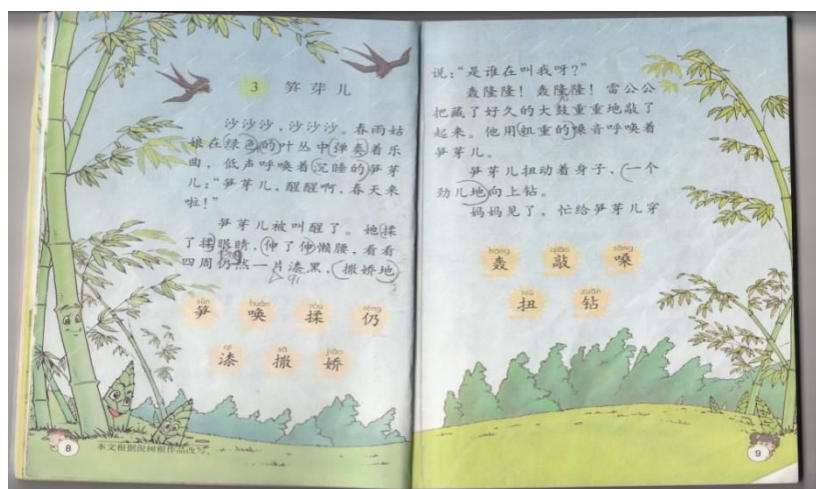 3 笋芽儿
沙沙沙，沙沙沙。春雨姑
娘在绿色的叶丛中弹奏着乐
曲，低声呼唤着沉睡的笋芽
儿：“笋芽儿，醒醒啊，春天来
啦！”
笋芽儿被叫醒了。她揉
了揉眼睛，伸了伸懒腰，看看
四周仍然一片漆黑，撒娇地
sǔn huàn róu réng
笋 唤 揉 仍
qī sā jiāo
漆 撒 娇
8 本文根据倪树根作品改写。
说：“是谁在叫我呀？”
轰隆隆！轰隆隆！雷公公
把藏了好久的大鼓重重地敲了
起来。他用粗重的嗓音呼唤着
笋芽儿。
笋芽儿扭动着身子，一个
劲儿地向上钻。
妈妈见了，忙给笋芽儿穿
hōng qiāo sǎng
轰 敲 嗓
niǔ zuān
扭 钻
9